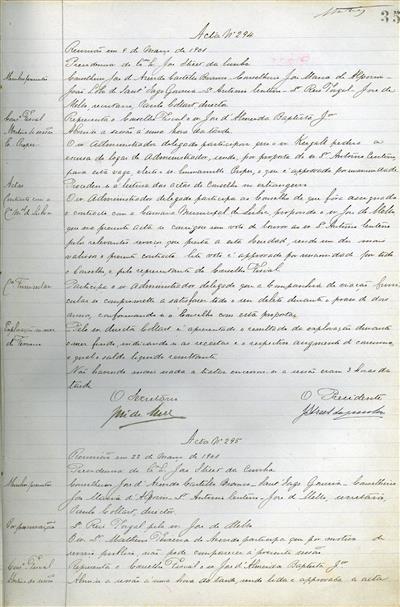 35
Acta Nº 294
Reunião em 8 de Março de 1901
Presidencia do Exmo. Sr. José Street da Cunha
Membros presentes
Conselheiro José d'Azevedo Castello Branco - Conselheiro José Maria de
José de Sant'Iago Gouveia - Dr. Antonio Centeno - Dr. Ruy Jorge de
Mello, secretario, Paulo Collart, director
Consº Fiscal
Representa o Conselho Fiscal o sr José d'Almeida Baptista Jor
Abriu-se a sessão á uma hora da tarde
O sr Administrador delegado participou que o sr pediu a
escusa do logar de Administrador, sendo, por proposta do sr Dr. Antonio Centeno,
para esta vaga, eleito o sr Emmanuelle, o que é approvado por unanimidade
Actas
Procedeu-se á leitura das actas do Conselho no extrangeiro
Contracto com a
Cª Mal de Lisboa
O sr Administrador delegado participa ao Conselho de que fôra assignado
o contracto com a Camara Municipal de Lisboa, propondo o sr José de Mello
que na presente acta se consigne um voto de louvor ao sr Dr. Antonio Centeno
pelo relevantes serviços que presta a esta Sociedade, sendo um dos mais
valiosos o presente contracto. Este voto é approvado por unanimidade por todo
o Conselho e pelo representante do Conselho Fiscal.
Cª Funicular
Participa o sr Administrador delegado que a Companhia de viação funi-
cular se compromette a satisfazer todo o seu debito durante o praso de dois
annos, conformando-se o Conselho com esta proposta
Exploração no mez
de Fevereiro
Pelo sr director Collart é apresentado o resultado da exploração durante
o mez findo, indicando-se as receitas e o respectivo augmento de consumo,
e qual o saldo liquido resultante
Não havendo mais nada a tratar encerrou-se a sessão eram 3 horas da
tarde
O Secretario
O Presidente
José de Mello
J Street da Cunha
Acta Nº 295
Reunião em 22 de Março de 1901
Presidencia do Exmo. Sr. José Street da Cunha
Membros presentes
Conselheiro José d'Azevedo Castello Branco - Sant'Iago Gouveia - Conselheiro
José Maria d' - Dr. Antonio Centeno - José de Mello, secretario
Paulo Collart, director.
Por procuração
Dr. Ruy pelo sr José de Mello
O sr Dr. Matheus Teixeira de Azevedo participa que por motivo de
serviço publico, não pode comparecer á presente sessão
Consº Fiscal
Representa o Conselho Fiscal o sr José d'Almeida Baptista Jor
Abriu-se a sessão á uma hora da tarde, sendo lida e approvada a acta